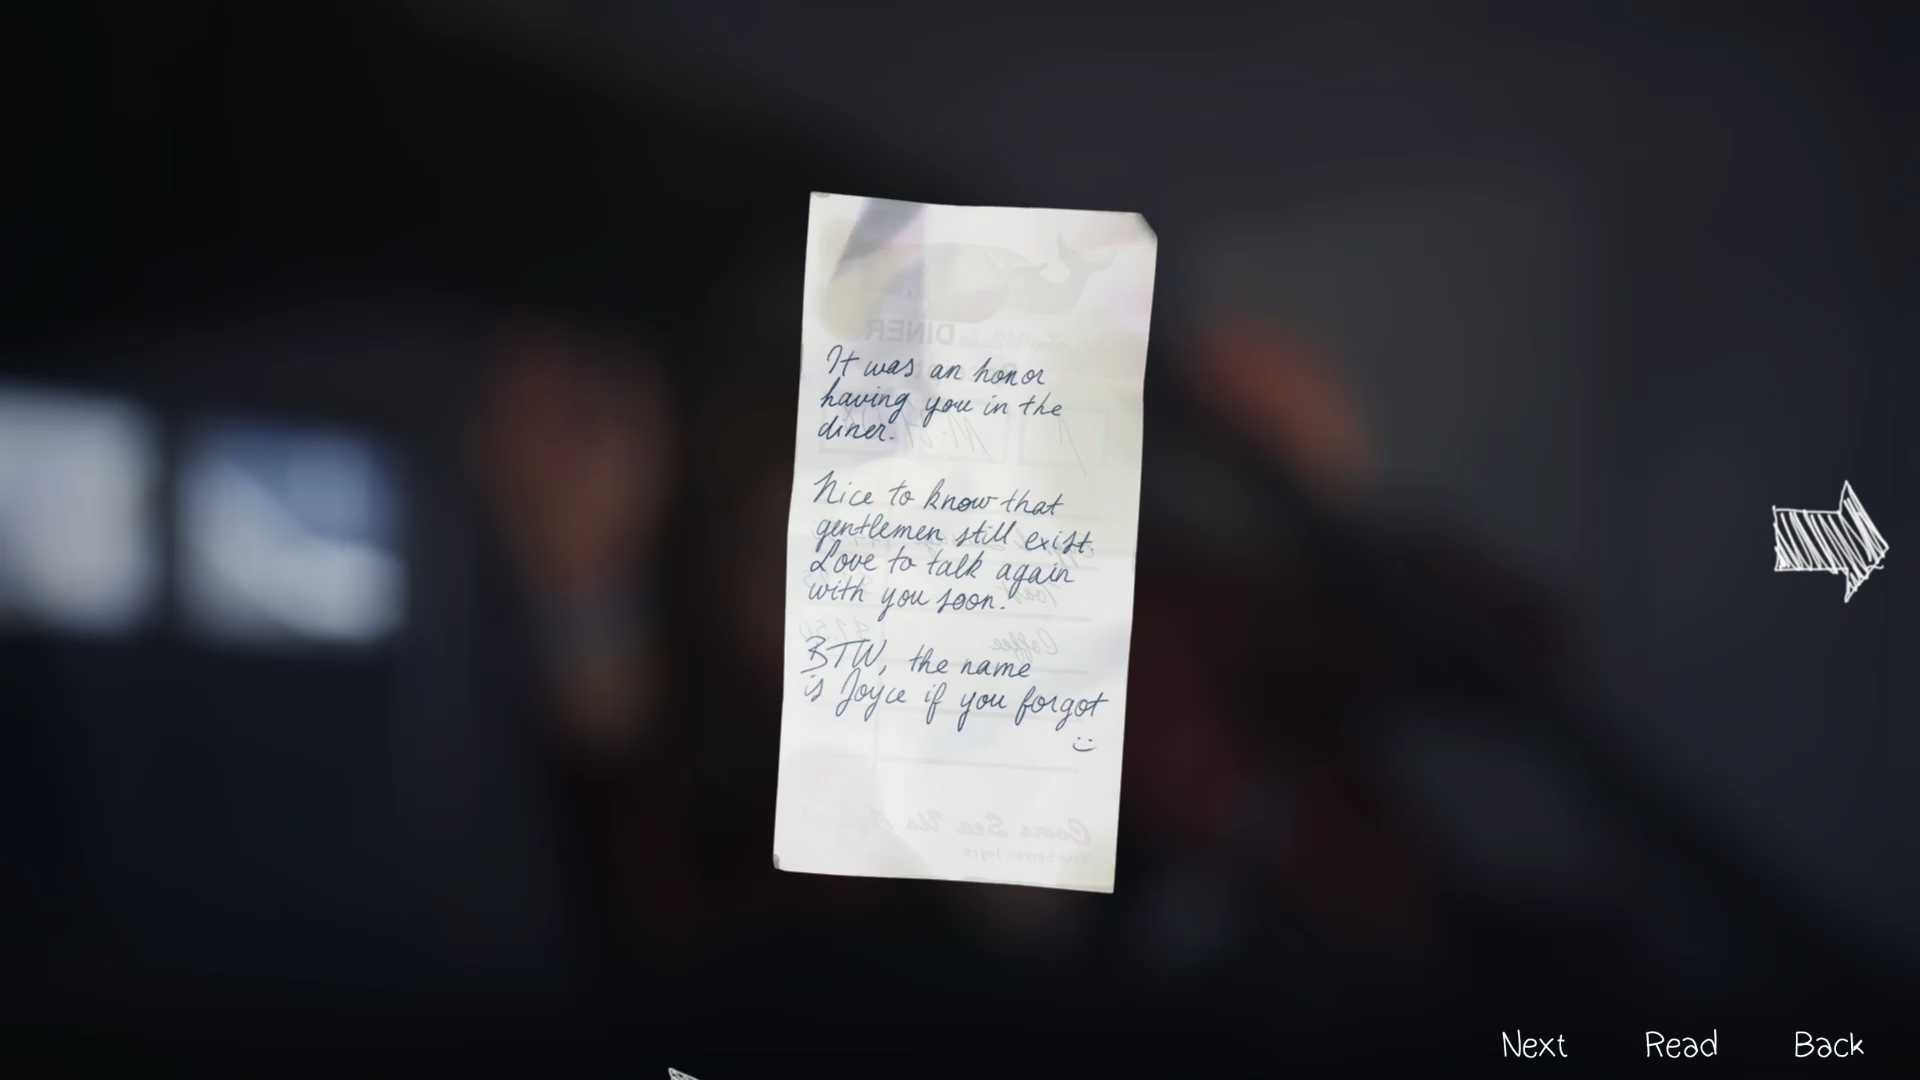 DINER
It was an honor
having you in the
diner.
Nice to know that
gentlemen still exist.
Love to talk again
with you soon.
Toast
Coffee
BTW, the name
is Joyce if you forgot
:)
Come See Us
Next Read Back